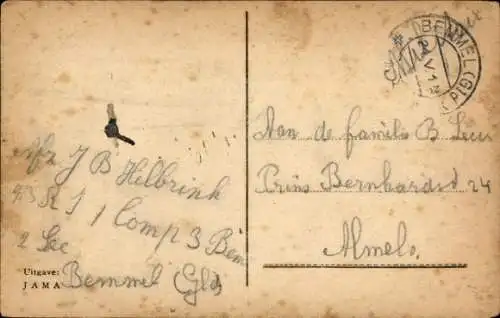 Afz J B Helbrink
43 R I 1 Comp 3 Bem
2 Sec
Bemmel (Gld)
Uitgave:
JAMA
BEMMEL (Gld)
Aan de familie B
Prins Bernhardst 24
Almelo